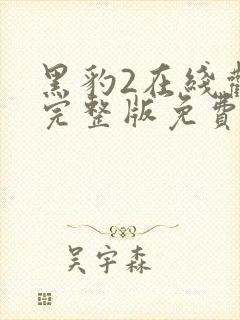 黑豹2在线觀
完整版免費
吴宇森